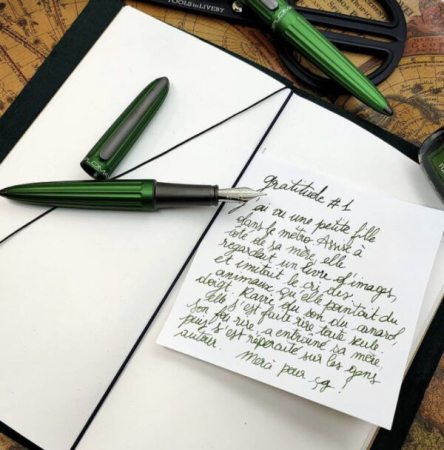 TOOLS to LIVEBY
gratitude #1
J'ai vu une petite fille
dans le métro. Assise à
côté de sa mère, elle
regardait un livre d'images,
et imitait le cri des
animaux qu'elle pointait du
doigt. Ravie du son du canard,
elle s'est faite rire toute seule.
son fou rire a entraîné sa mère,
puis s'est répercuté sur les gens
autour. Merci pour ça!